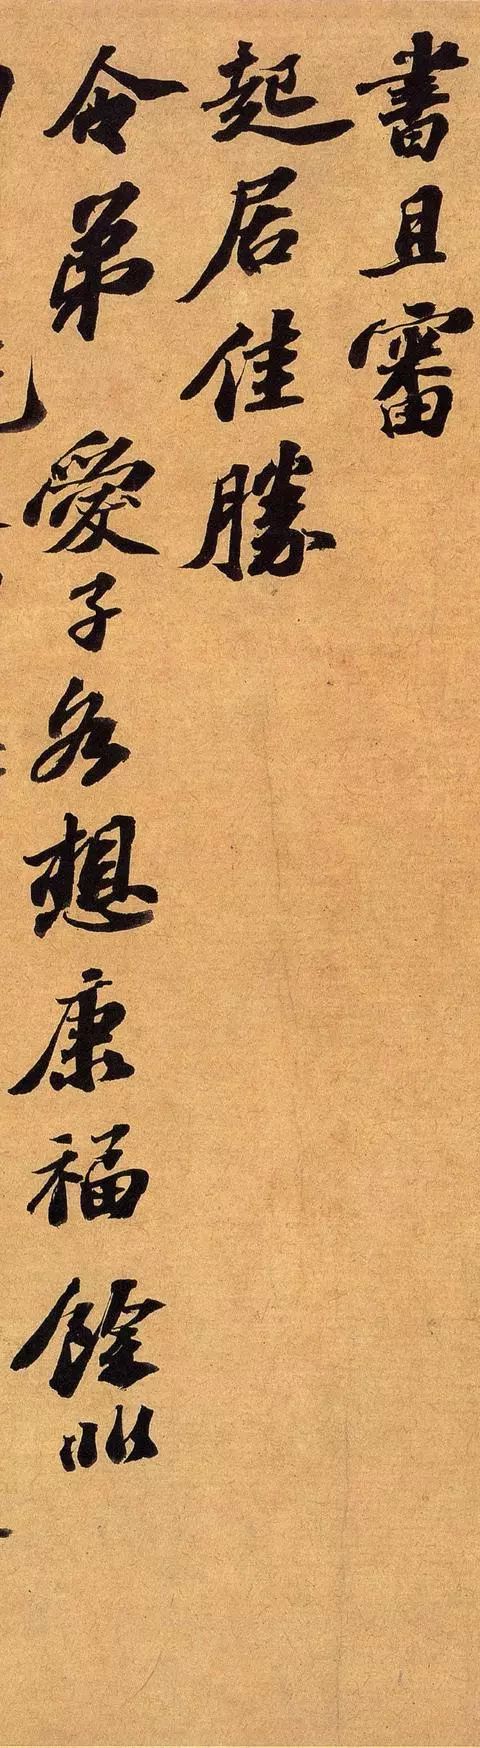 書且審
起居佳勝
令弟 愛子各想康福 餘非